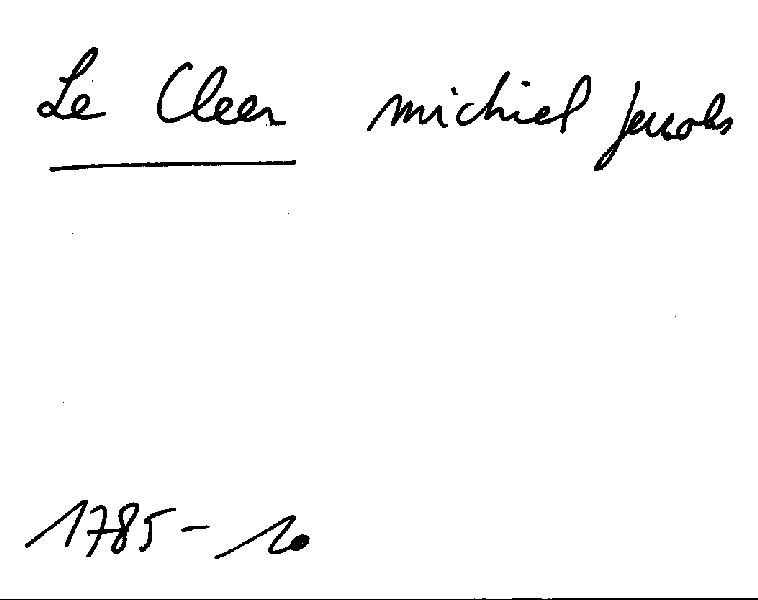 Le Cleer michiel Jacobs
1785-10